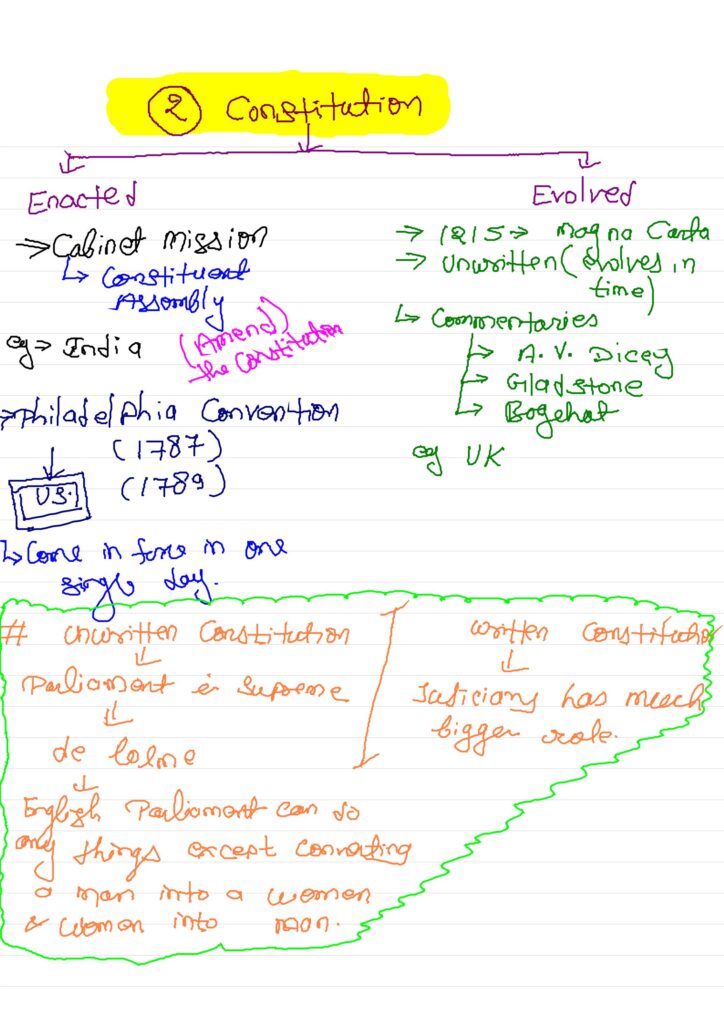 ② Constitution
Enacted
→ Cabinet mission
↳ Constituent
Assembly
eg → India
(Amend)
the Constitution
→ Philadelphia Convention
(1787)
U.S.
(1789)
↳ Come in force in one
single day.
Evolved
→ 1215 → Magna Carta
→ Unwritten (evolves in
time)
↳ Commentaries
→ A. V. Dicey
→ Gladstone
→ Bagehot
eg UK
# Unwritten Constitution
↓
Parliament is Supreme
↓
de lolme
↓
English Parliament can do
any things except converting
a man into a women
& women into man.
written Constitution
↓
Judiciary has much
bigger role.